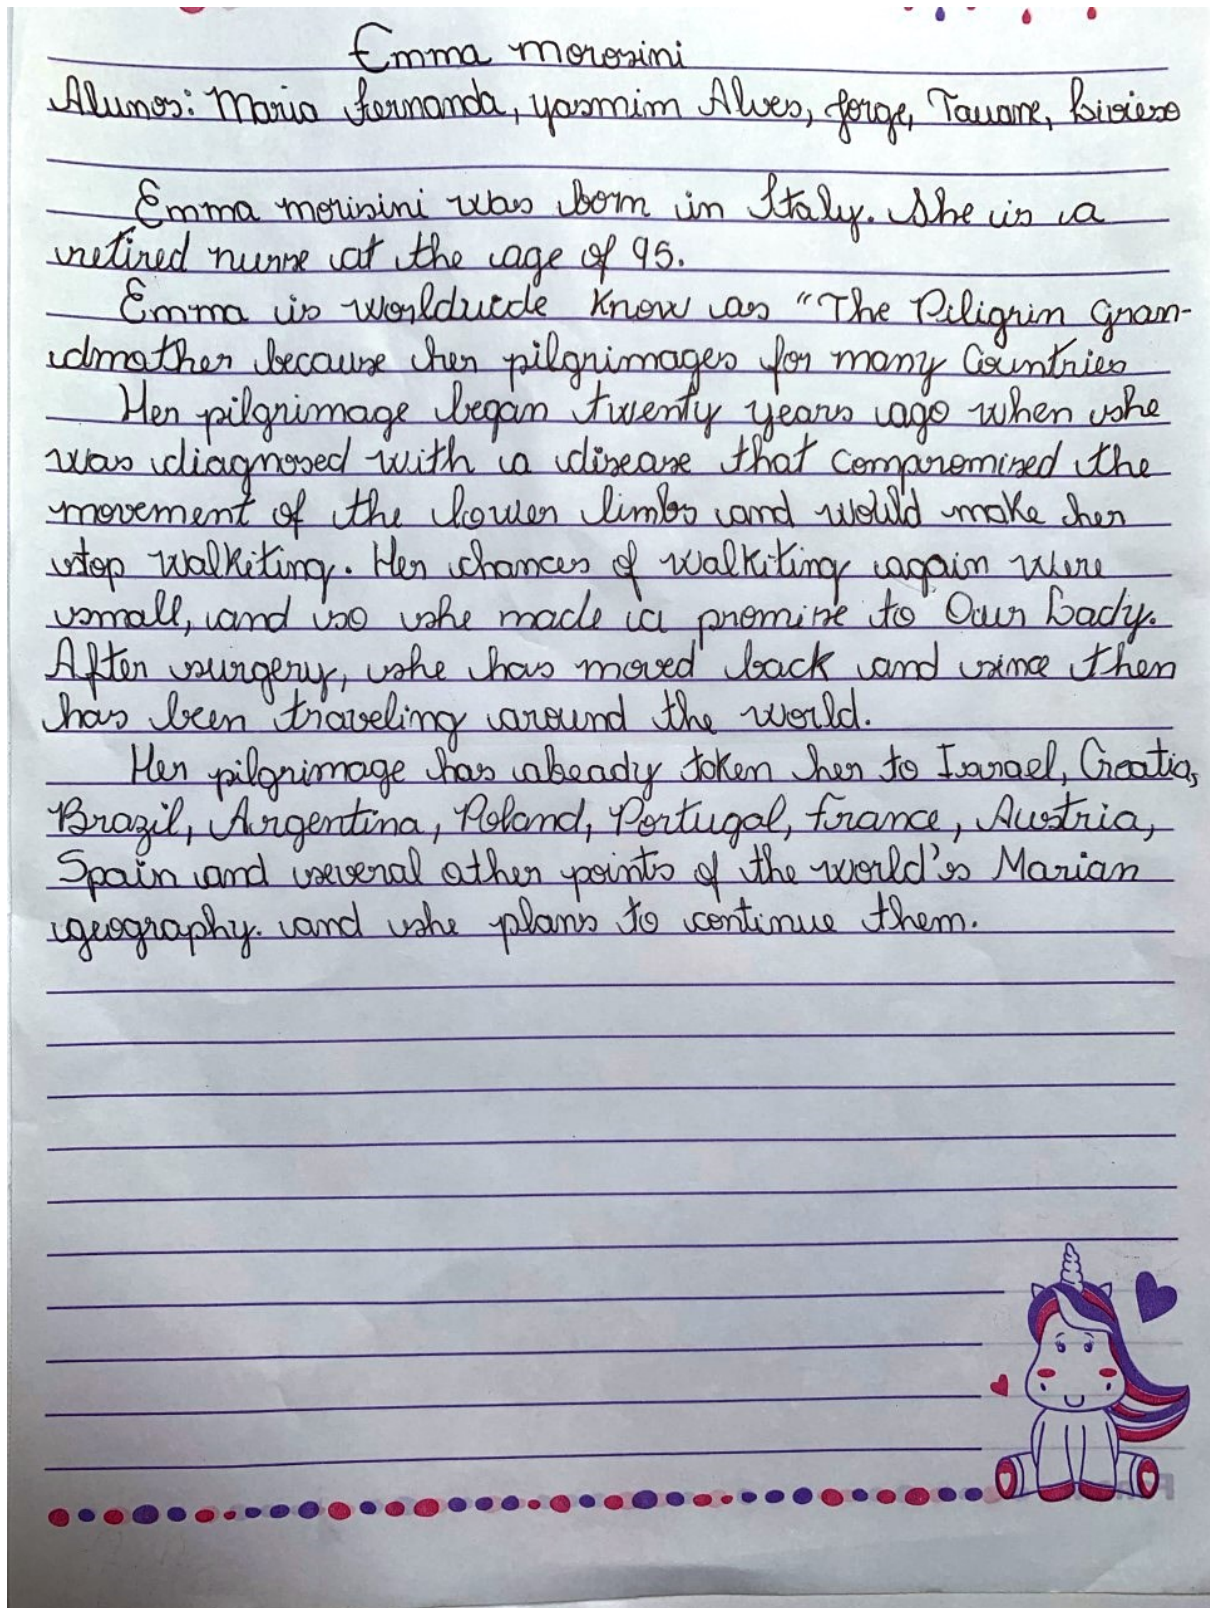 Emma morosini
Alunos: Maria Fernanda, yasmim Alves, Jorge, Tauane,
Emma morisini was born in Italy. She is a
retired nurse at the age of 95.
Emma is worldwide know as "The Piligrin Gran-
dmother because her pilgrimages for many Countries
Her pilgrimage began twenty years ago when she
was diagnosed with a disease that compromised the
movement of the lower limbs and would make her
stop walkiting. Her chances of walkiting again were
small, and so she made a promise to Our Lady.
After surgery, she has moved back and since then
has been traveling around the world.
Her pilgrimage has already token her to Israel, Croatia,
Brazil, Argentina, Poland, Portugal, france, Austria,
Spain and several other points of the world's Marian
geography. and she plans to continue them.